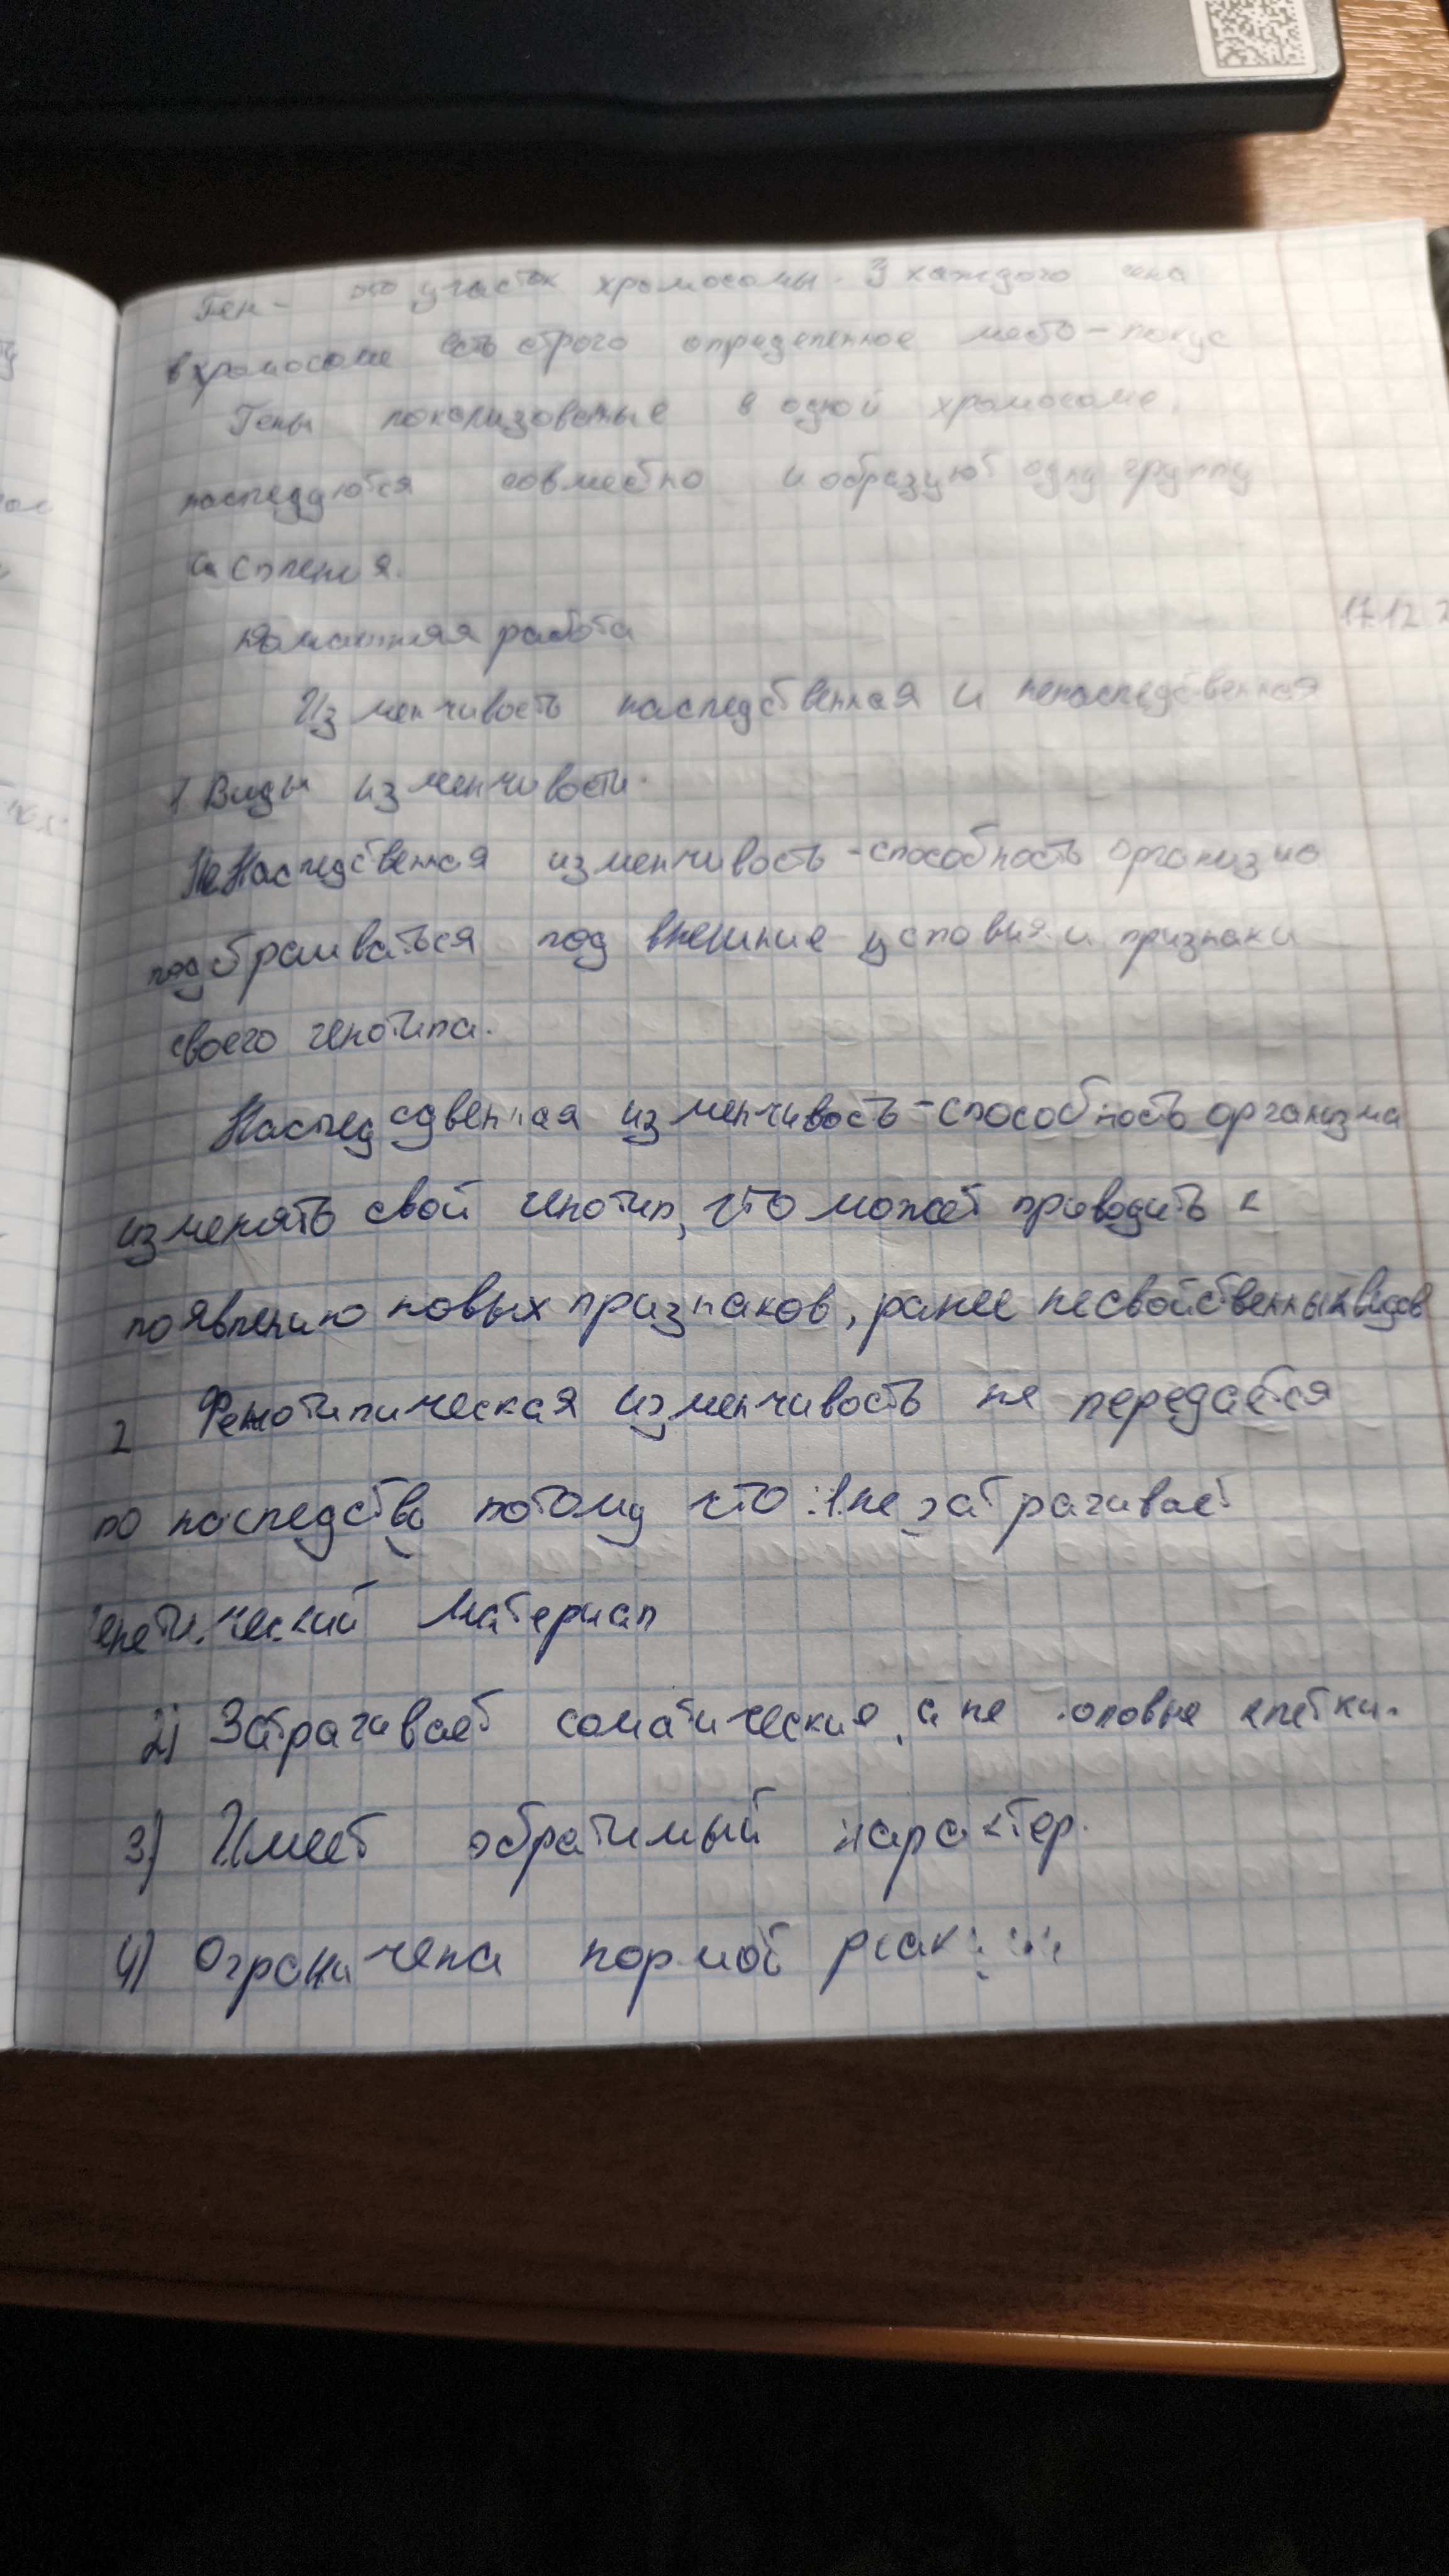 Ген - это участок хромосомы. У каждого гена
в хромосоме есть строго определенное место - локус
Гены локализованые в одной хромосоме,
наследуются совместно и образуют одну группу
сцепления.
Домашняя работа
17.12.2
Изменчивость наследственная и ненаследственная
1 Виды изменчивости.
Ненаследственная изменчивость - способность организма
подстраиваться под внешние условия и признаки
своего генотипа.
Наследсдвенная изменчивость - способность организма
изменять свой генотип, что может приводить к
появлению новых признаков, ранее несвойственных видов
2 Фенотипическая изменчивость не передаётся
по наследству потому что: 1. не затрагивает
генетический материал
2) Затрагивает соматические, а не половые клетки.
3) Имеет обратимый характер.
4) Ограничена нормой реакции